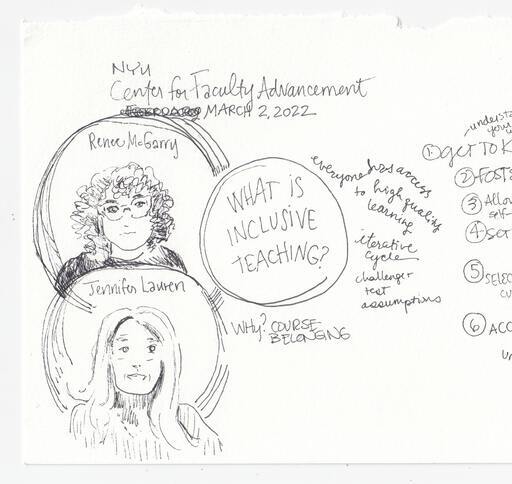 NYU
Center for Faculty Advancement
MARCH 2, 2022
Renee McGarry
WHAT IS
INCLUSIVE
TEACHING?
Jennifer Lauren
everyone has access
to high quality
learning
iterative
cycle
challenger
test
assumptions
Why? COURSE
BELONGING
understa
your
① GET TO K
② FOST
③ Allow
self-
④ SET
⑤ SELEC
cu
⑥ ACC
un